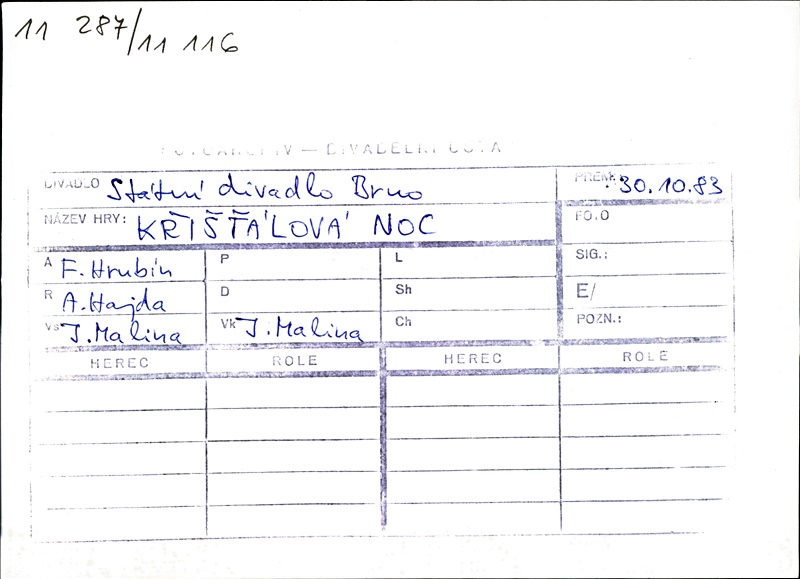 11 287/11 116
FOTOARCHIV — DIVADELNÍ
DIVADLO Státní divadlo Brno PREM.: 30.10.83
NÁZEV HRY: KŘIŠŤÁLOVÁ NOC FO.O
A F. Hrubín P L SIG.:
R A. Hajda D Sh E/
VS J. Malina Vk J. Malina Ch POZN.:
HEREC ROLE HEREC ROLE